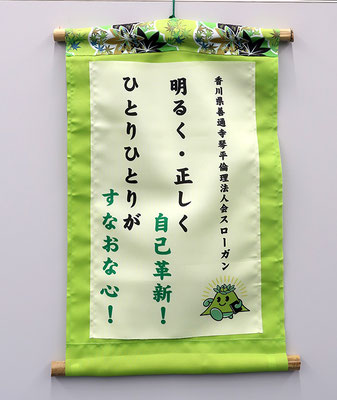 香川県善通寺琴平倫理法人会スローガン
明るく・正しく
自己革新！
ひとりひとりが
すなおな心！